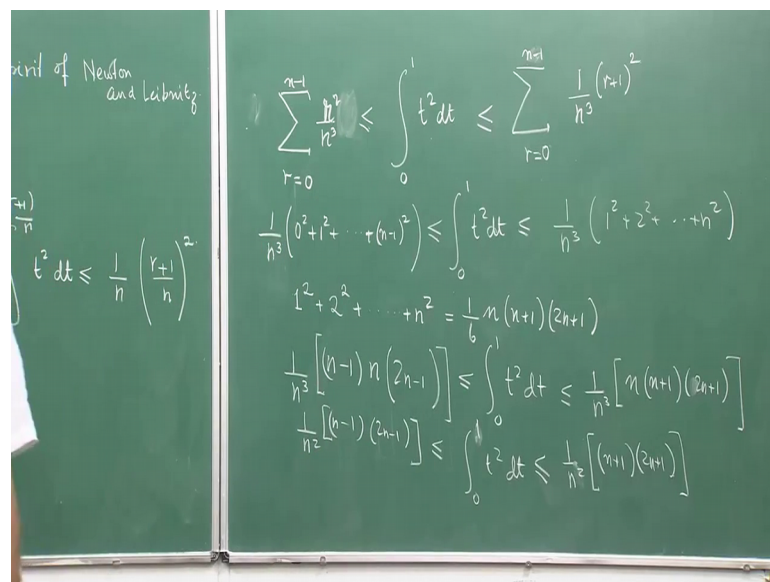 of Newton
and Leibnitz
t² dt ≤ 1/n ((r+1)/n)²
∑_{r=0}^{n-1} r²/n³ ≤ ∫_0^1 t² dt ≤ ∑_{r=0}^{n-1} 1/n³ (r+1)²
1/n³ (0²+1²+ ⋯ +(n-1)²) ≤ ∫_0^1 t² dt ≤ 1/n³ (1²+2²+ ⋯ +n²)
1²+2²+ ⋯ +n² = 1/6 n(n+1)(2n+1)
1/n³ [(n-1) n (2n-1)] ≤ ∫_0^1 t² dt ≤ 1/n³ [n(n+1)(2n+1)]
1/n² [(n-1)(2n-1)] ≤ ∫_0^1 t² dt ≤ 1/n² [(n+1)(2n+1)]